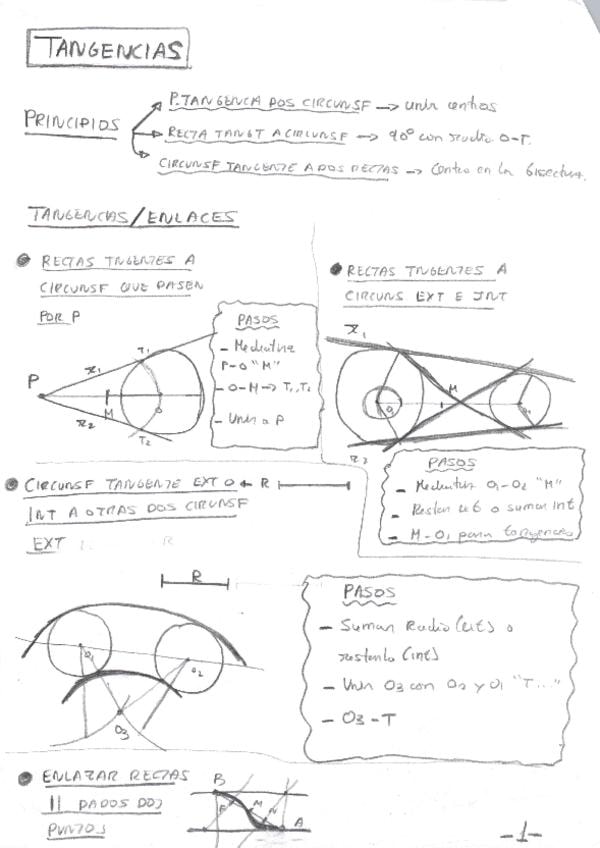 TANGENCIAS
PRINCIPIOS
P. TANGENCIA DOS CIRCUNSF → unir centros
RECTA TANGT A CIRCUNSF → 90° con radio O-T.
CIRCUNSF TANGENTE A DOS RECTAS → Centro en la bisectriz.
TANGENCIAS/ENLACES
RECTAS TNGENTES A
CIRCUNSF QUE PASEN
POR P
PASOS
- Mediatriz
P-O "M"
- O-M → T1, T2
- Unir a P
P
r1
r2
T1
T2
M
O
RECTAS TNGENTES A
CIRCUNS EXT E INT
r1
r2
O1
M
O2
PASOS
- Mediatriz O1-O2 "M"
- Restar ext o sumar Int
- M-O1 para tangencias
CIRCUNSF TANGENTE EXT O ← R
INT A OTRAS DOS CIRUNSF
EXT
R
O1
O2
O3
PASOS
- Sumar Radio (ext) o
restarlo (int)
- Unir O3 con O2 y O1 "T..."
- O3-T
ENLAZAR RECTAS
|| DADOS DOS
PUNTOS
B
M
N
A
-1-